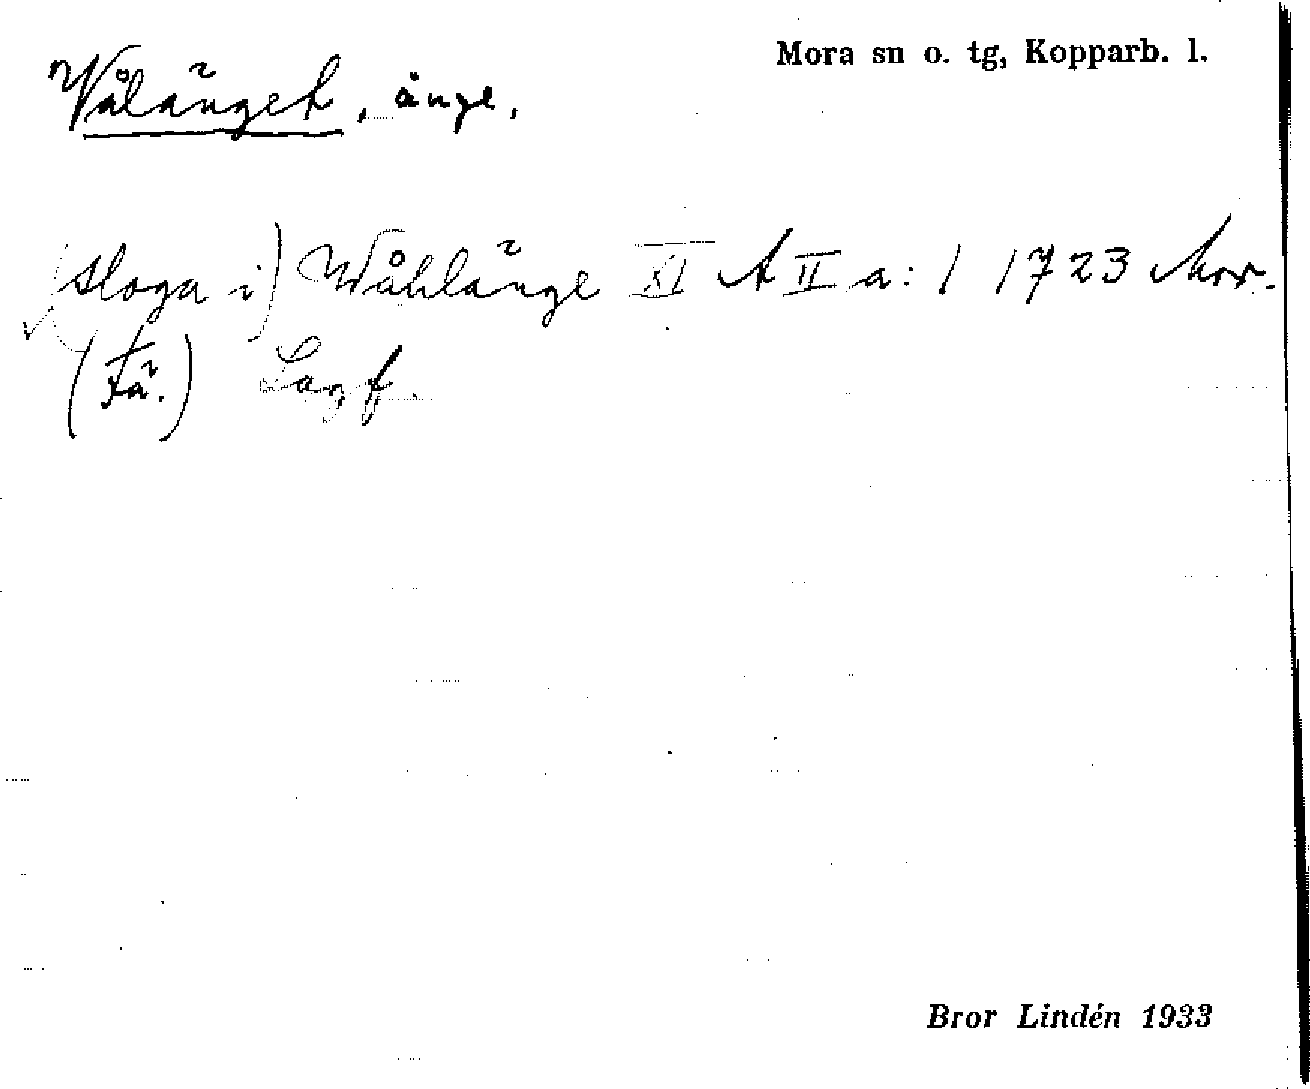 Vålänget, änge.
Mora sn o. tg, Kopparb. l.
(sloga i) Wåhlänge XI A II a: 1 1723 Mor.
(Fä.) Lagf.
Bror Lindén 1933